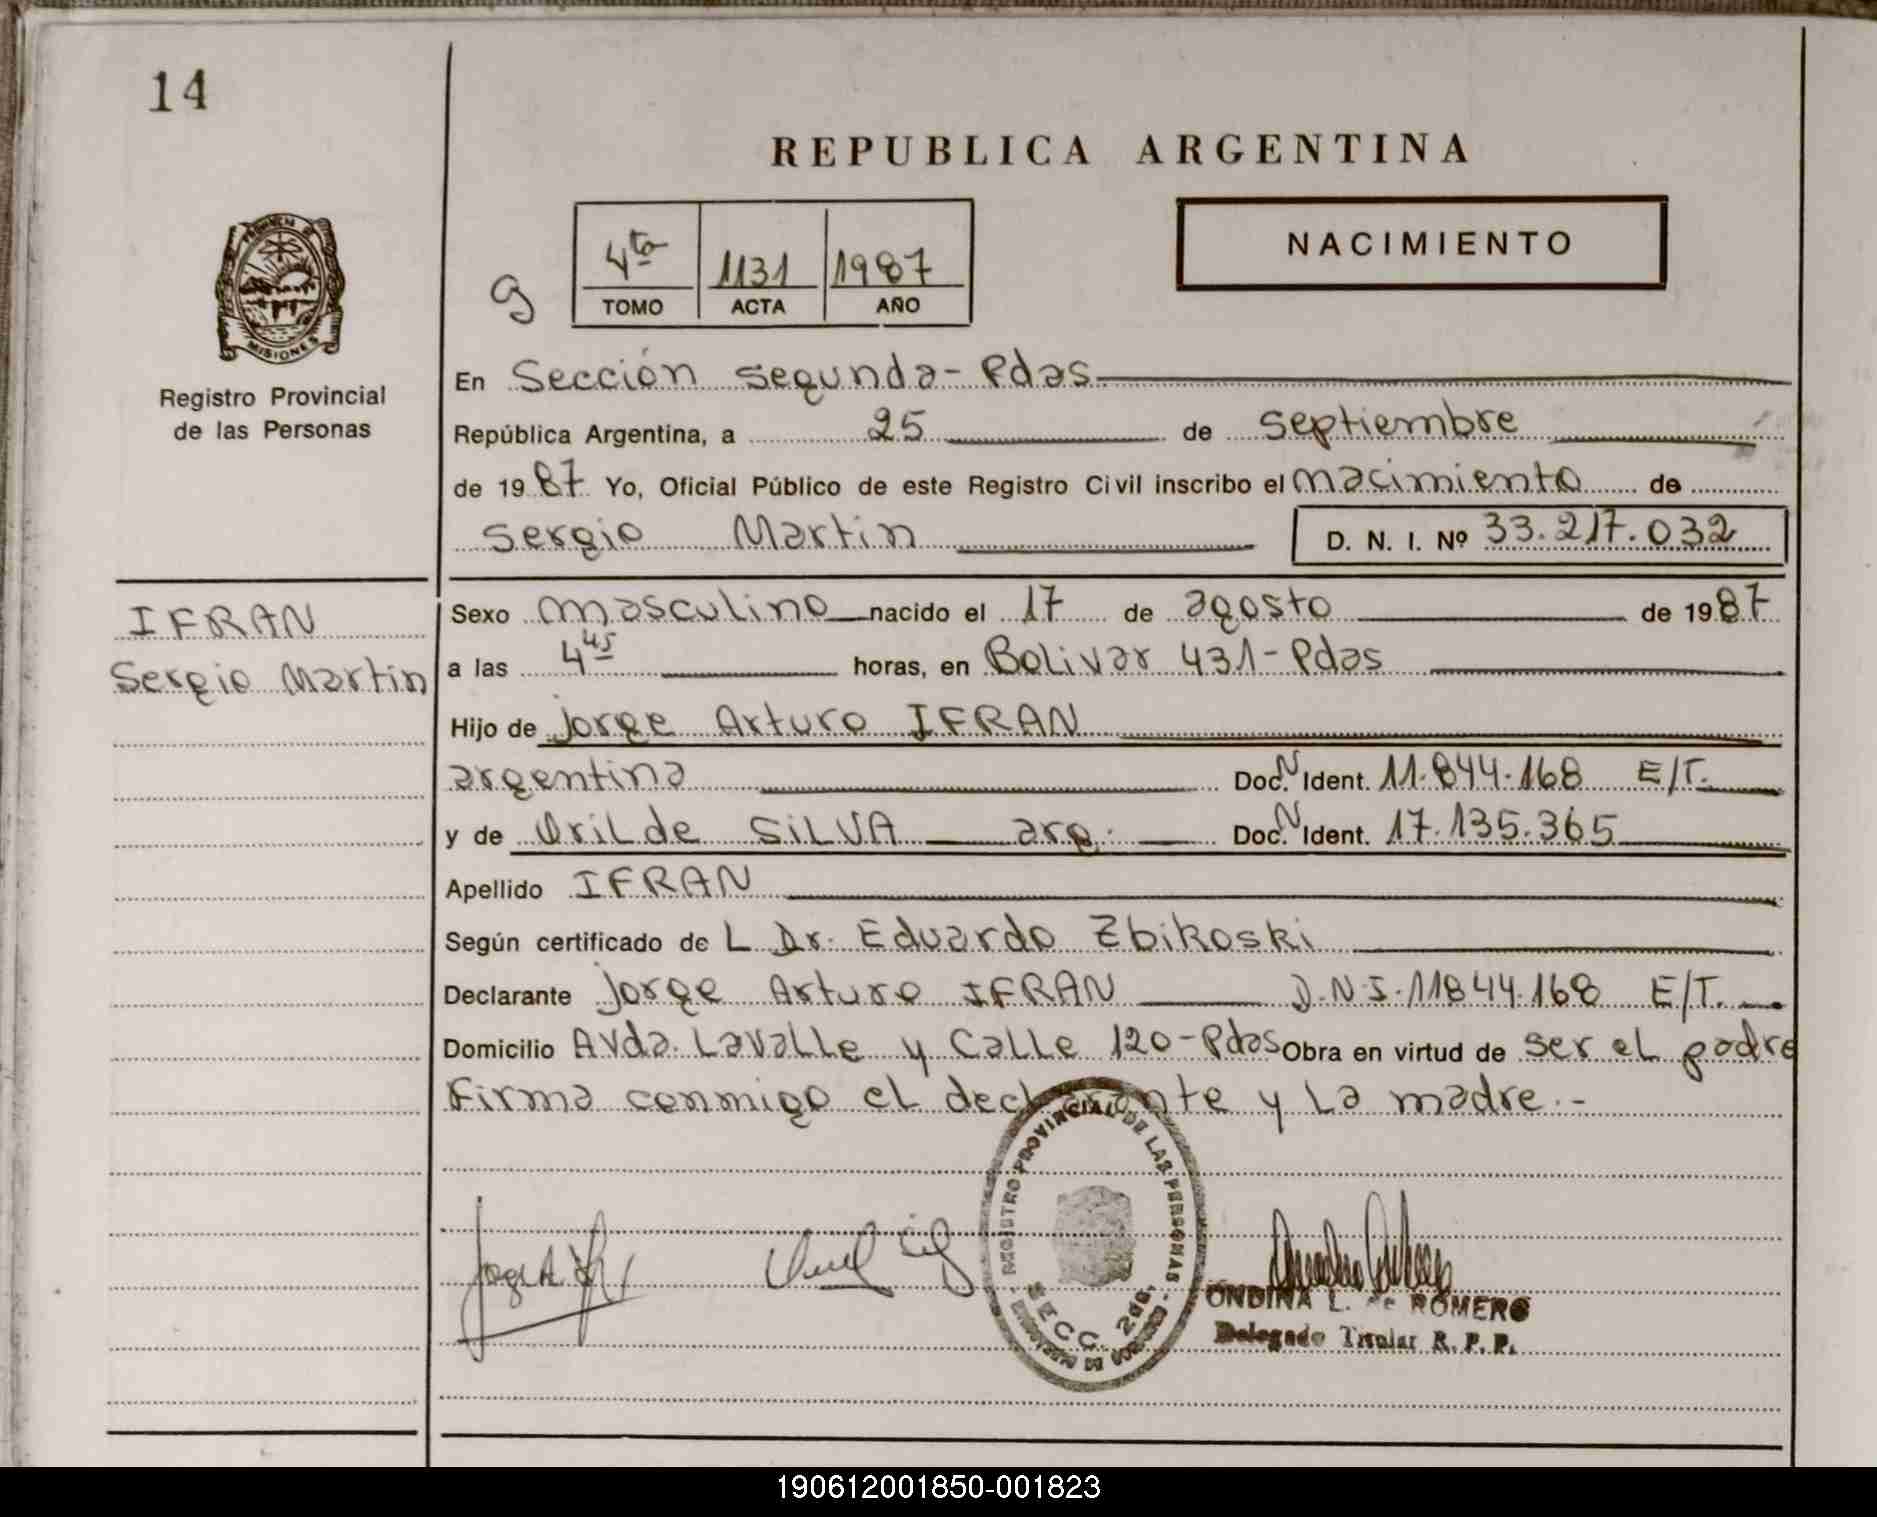 14
REPUBLICA ARGENTINA
NACIMIENTO
4ta 1131 1987
TOMO ACTA AÑO
g
PROVINCIA DE
MISIONES
Registro Provincial
de las Personas
En Sección segunda - Pdas
República Argentina, a 25 de septiembre
de 1987 Yo, Oficial Público de este Registro Civil inscribo el nacimiento de
Sergio Martin D. N. I. Nº 33.217.032
IFRAN
Sergio Martin
Sexo masculino nacido el 17 de agosto de 1987
a las 4 45 horas, en Bolivar 431 - Pdas
Hijo de Jorge Arturo IFRAN
argentina Doc. N Ident. 11.844.168 E/T.
y de Orilde SILVA arg. Doc. N Ident. 17.135.365
Apellido IFRAN
Según certificado de L Dr. Eduardo Zbikoski
Declarante Jorge Arturo IFRAN D.N.I. 11844.168 E/T.
Domicilio Avda. Lavalle y Calle 120 - Pdas Obra en virtud de ser el padre
Firma conmigo el declarante y la madre. -
REGISTRO PROVINCIAL DE LAS PERSONAS
SECC. 2da.
ONDINA L. de ROMERO
Delegado Titular R. P. P.
190612001850-001823